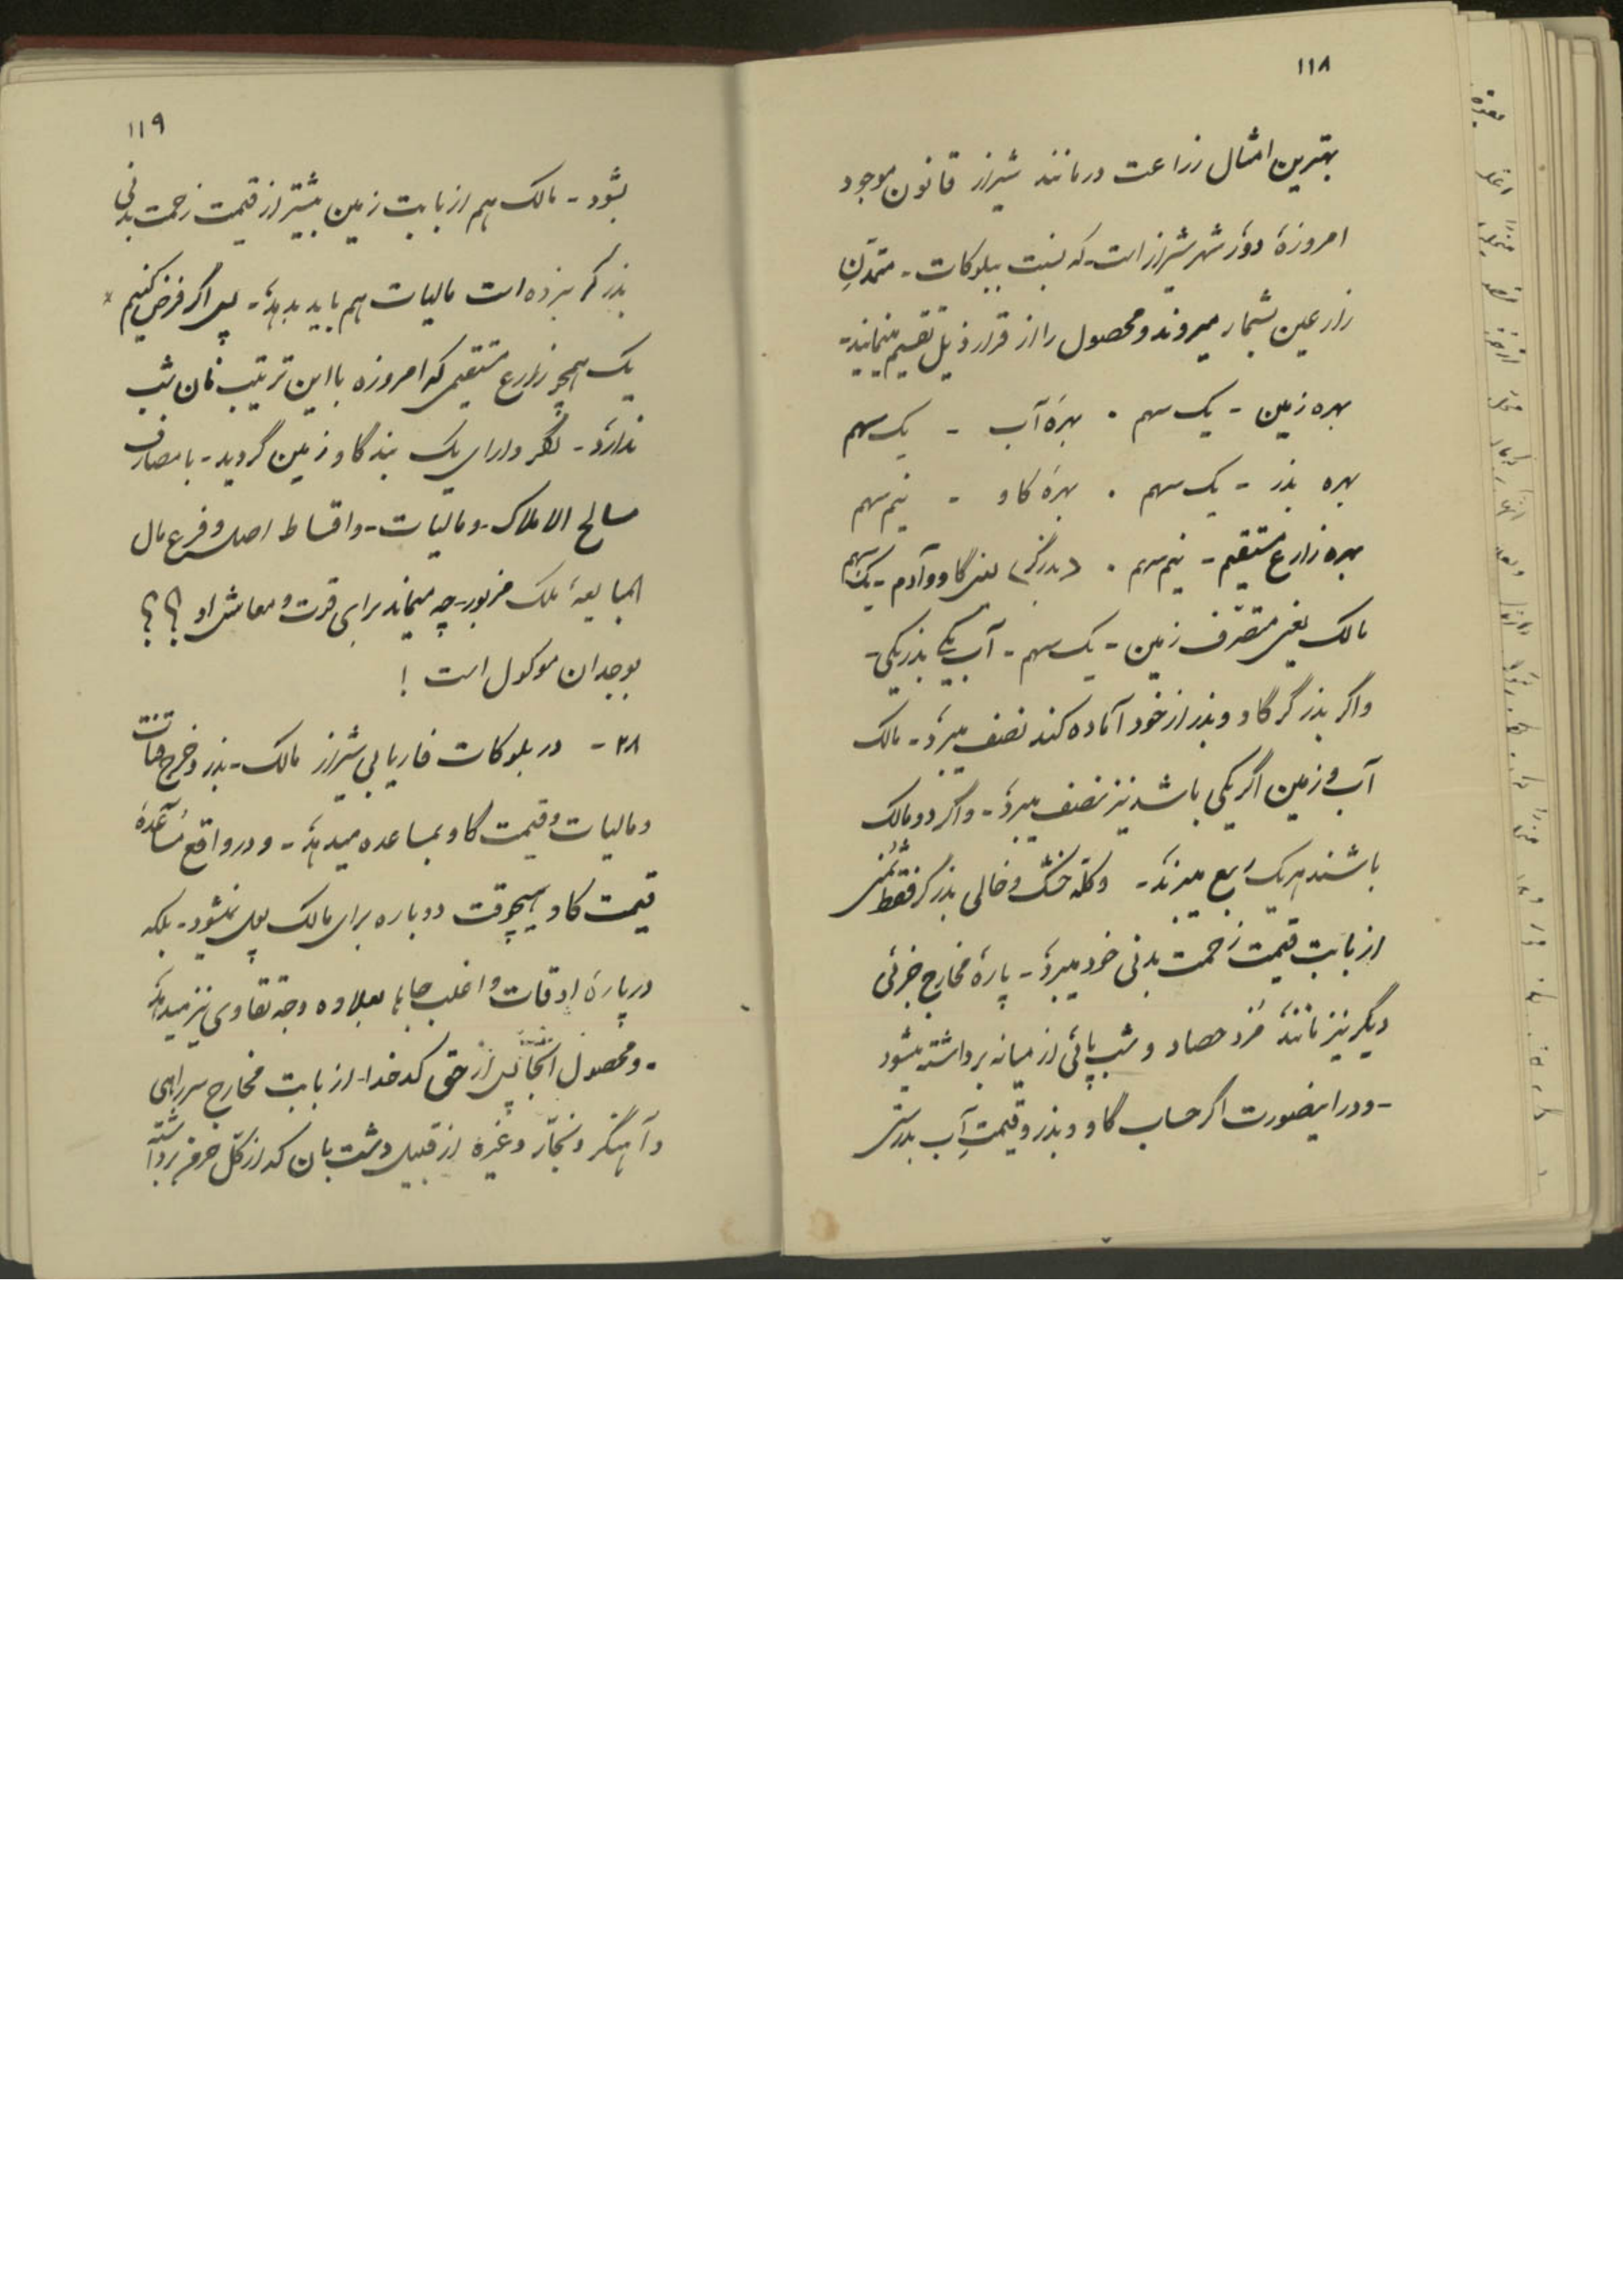 ۱۱۸
بهترین امثال زراعت در مانند شیراز قانون موجود
امروزهٔ دور شهر شیراز است که نسبت ببلوکات - متمدّنِ
زارعین بشمار میروند و محصول را از قرار ذیل تقسیم مینمایند -
بهره زمین - یک سهم . بهرهٔ آب - یک سهم
بهره بذر - یک سهم . بهرهٔ گاو - نیم سهم
بهره زارع مستقیم - نیم سهم . (بذرگر) یعنی گاو و آدم - یک سهم
مالک یعنی متصرّف زمین - یک سهم - آب یکی بذر یکی -
و اگر بذرگر گاو و بذر از خود آماده کند نصف میبرد - مالک
آب و زمین اگر یکی باشد نیز نصف میبرد - و اگر دو مالک
باشند هر یک ربع میبرند - و کلّه خشک و خالی بذرگر فقط ثُمنی
از بابت قیمت زحمت بدنی خود میبرد - پارهٔ مخارج جزئی
دیگر نیز مانند مُزد حصاد و شب پائی از میانه برداشته میشود
- و در اینصورت اگر حساب گاو و بذر و قیمتِ آب بدرستی
۱۱۹
بشود - مالک هم از بابت زمین بیشتر از قیمت زحمت بدنی
بذرگر نبرده است مالیات هم باید بدهد - پس اگر فرض کنیم
یک همچو زارع مستقیمی که امروزه با این ترتیب نان شب
ندارد - دارای یک بند گاو زمین گردید - با مصارف
مسالح الاملاک - و مالیات - و اقساط اصل و فرع مال
المبایعهٔ ملک مزبور - چه میماند برای قوت و معاش او ؟؟
بوجدان موکول است !
۲۸ - در بلوکات فاریابی شیراز مالک - بذر و خرج قنات
و مالیات و قیمت گاو بمساعده میدهد - و در واقع مُساعدهٔ
قیمت گاو هیچوقت دوباره برای مالک پول نمیشود - بلکه
در پارهٔ اوقات و اغلب جاها بعلاوه وجه تقاوی نیز میدهد
- و محصول آنجا پس از حق کدخدا - از بابت مخارج سرراهی
و آهنگر و نجّار و غیره از قبیل دشت بان که از کلّ خرمن برداشته